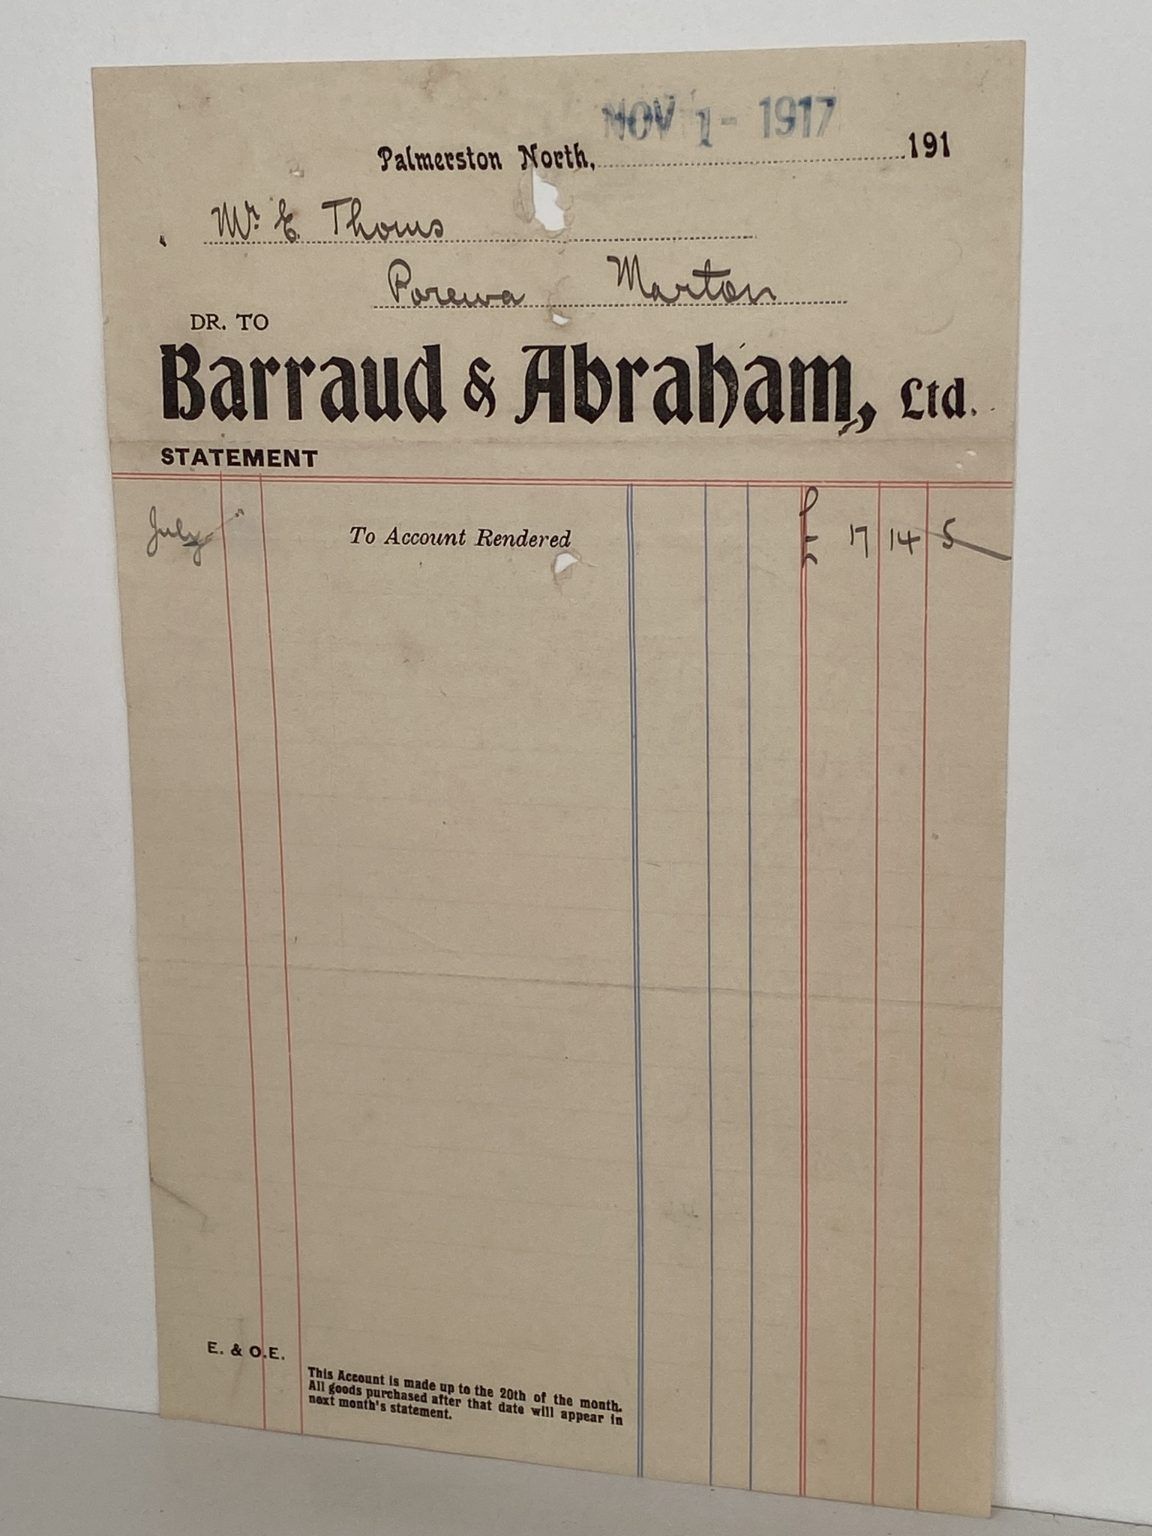 NOV 1 - 1917
Palmerston North, 191
Mr. E. Thoms
Porewa Marton
DR. TO
Barraud & Abraham, Ltd.
STATEMENT
July " To Account Rendered £ 17 14 5
E. & O.E.
This Account is made up to the 20th of the month.
All goods purchased after that date will appear in
next month's statement.